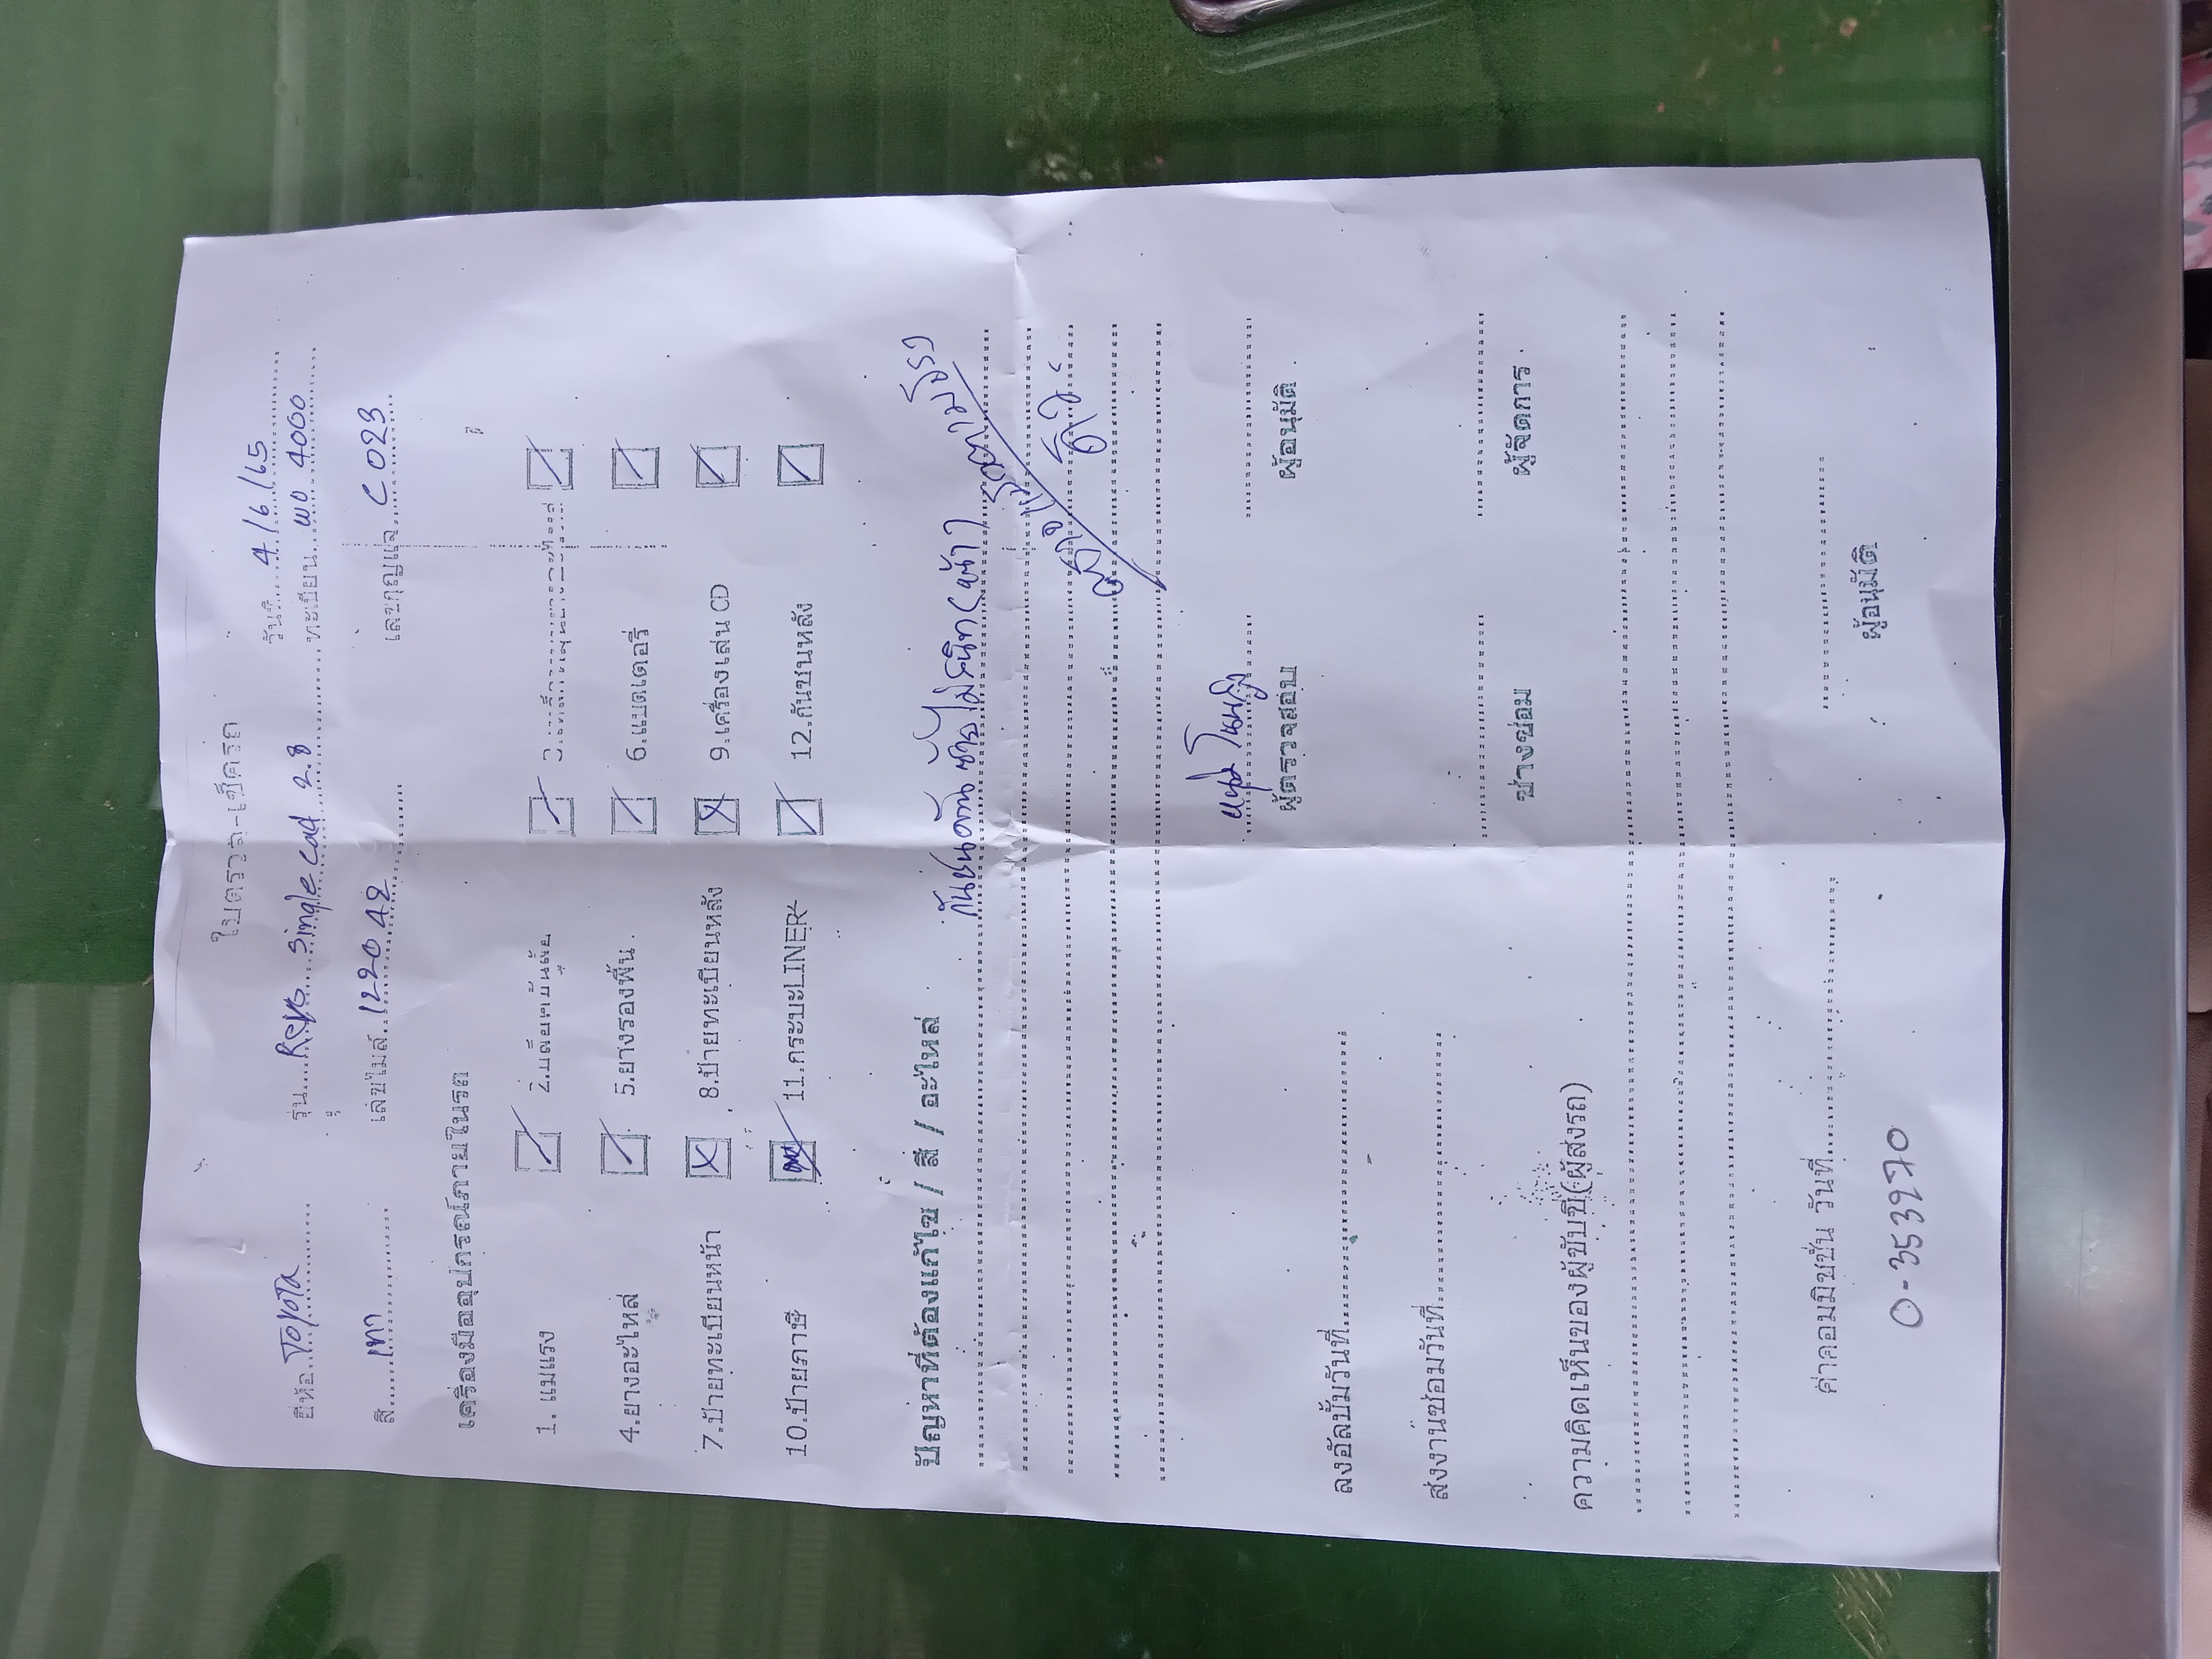 ใบตรวจ-เช็ครถ
วันที่ 4/6/65
ยี่ห้อ Toyota รุ่น Revo Single Cad 2.8 ทะเบียน ผอ 4000
สี เทา เลขไมล์ 122042 เลขกุญแจ C 023
เครื่องมืออุปกรณ์ภายในรถ
1. แม่แรง 2. 3.
4.ยางอะไหล่ 5.ยางรองพื้น 6.แบตเตอรี่
7.ป้ายทะเบียนหน้า 8.ป้ายทะเบียนหลัง 9.เครื่องเล่น CD
10.ป้ายภาษี 11.กระบะLINER 12.กันชนหลัง
ปัญหาที่ต้องแก้ไข / สี / อะไหล่
กันชนด้านซ้ายไม่สนิท (หน้า)
ผู้ตรวจสอบ ผู้อนุมัติ
ลงอัลบั้มวันที่
ส่งงานซ่อมวันที่
ช่างซ่อม ผู้จัดการ
ความคิดเห็นของผู้ขับขี่(ผู้ส่งรถ)
ค่าคอมมิชชั่น วันที่
ผู้อนุมัติ
0-353970